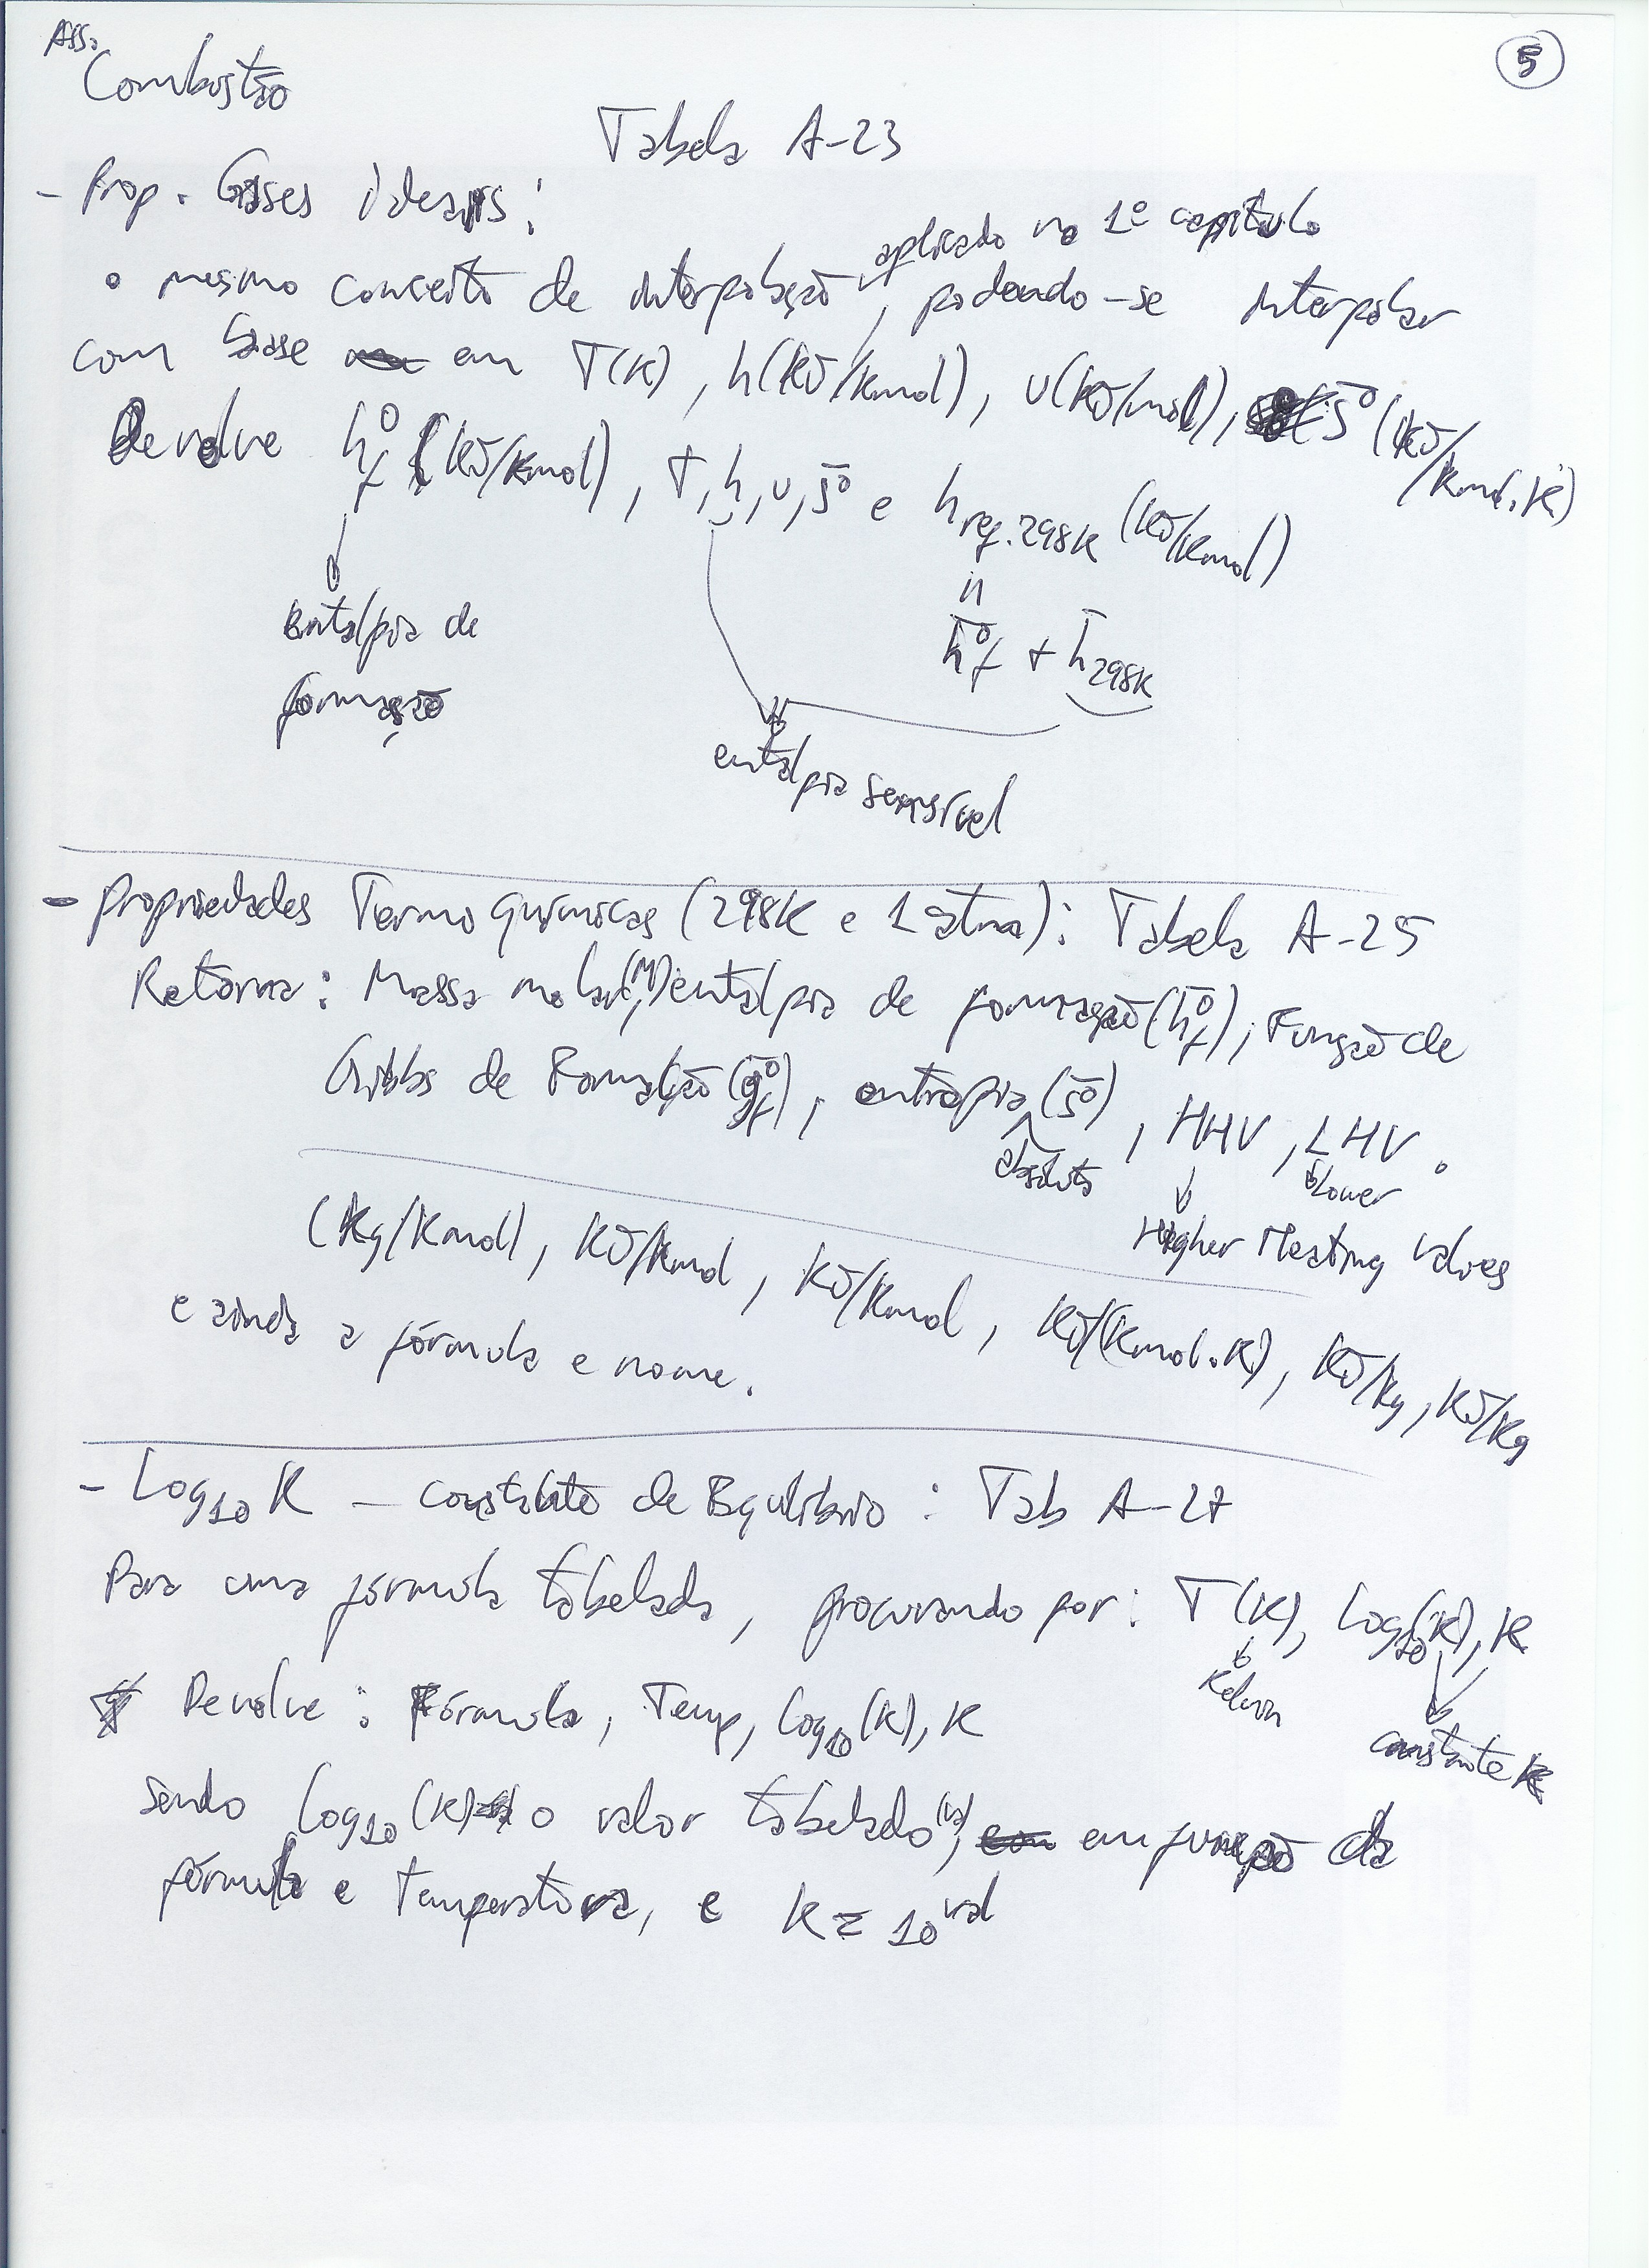 Ass.
Combustão
5
Tabela A-23
- Prop. Gases ideais:
o mesmo conceito de interpolação aplicado no 1º capitulo, podendo-se interpolar
com base em T(K), h(KJ/Kmol), u(KJ/mol), s̄⁰(KJ/Kmol.K)
Devolve h⁰f (KJ/Kmol), T, h, u, s̄⁰ e h ref. 298K (KJ/Kmol)
=
h̄⁰f + h̄298K
Entalpia de
formação
entalpia sensível
- Propriedades Termo químicas (298K e 1 atm): Tabela A-25
Retorna: Massa molar(M), entalpia de formação(h̄⁰f), Função de
Gibbs de Formação(ḡ⁰f), entropia absoluta (s̄⁰), HHV, LHV.
Lower
Higher Heating Values
(Kg/Kmol), KJ/Kmol, KJ/Kmol, KJ/(Kmol.K), KJ/Kg, KJ/Kg
e ainda a fórmula e nome.
- Log₁₀K - constante de Equilíbrio: Tab A-27
Para uma fórmula tabelada, procurando por: T(K), Log₁₀(K), K
Kelvin
constante K
Devolve: Fórmula, Temp, Log₁₀(K), K
sendo Log₁₀(K) o valor tabelado, em função da
fórmula e temperatura, e K = 10^val